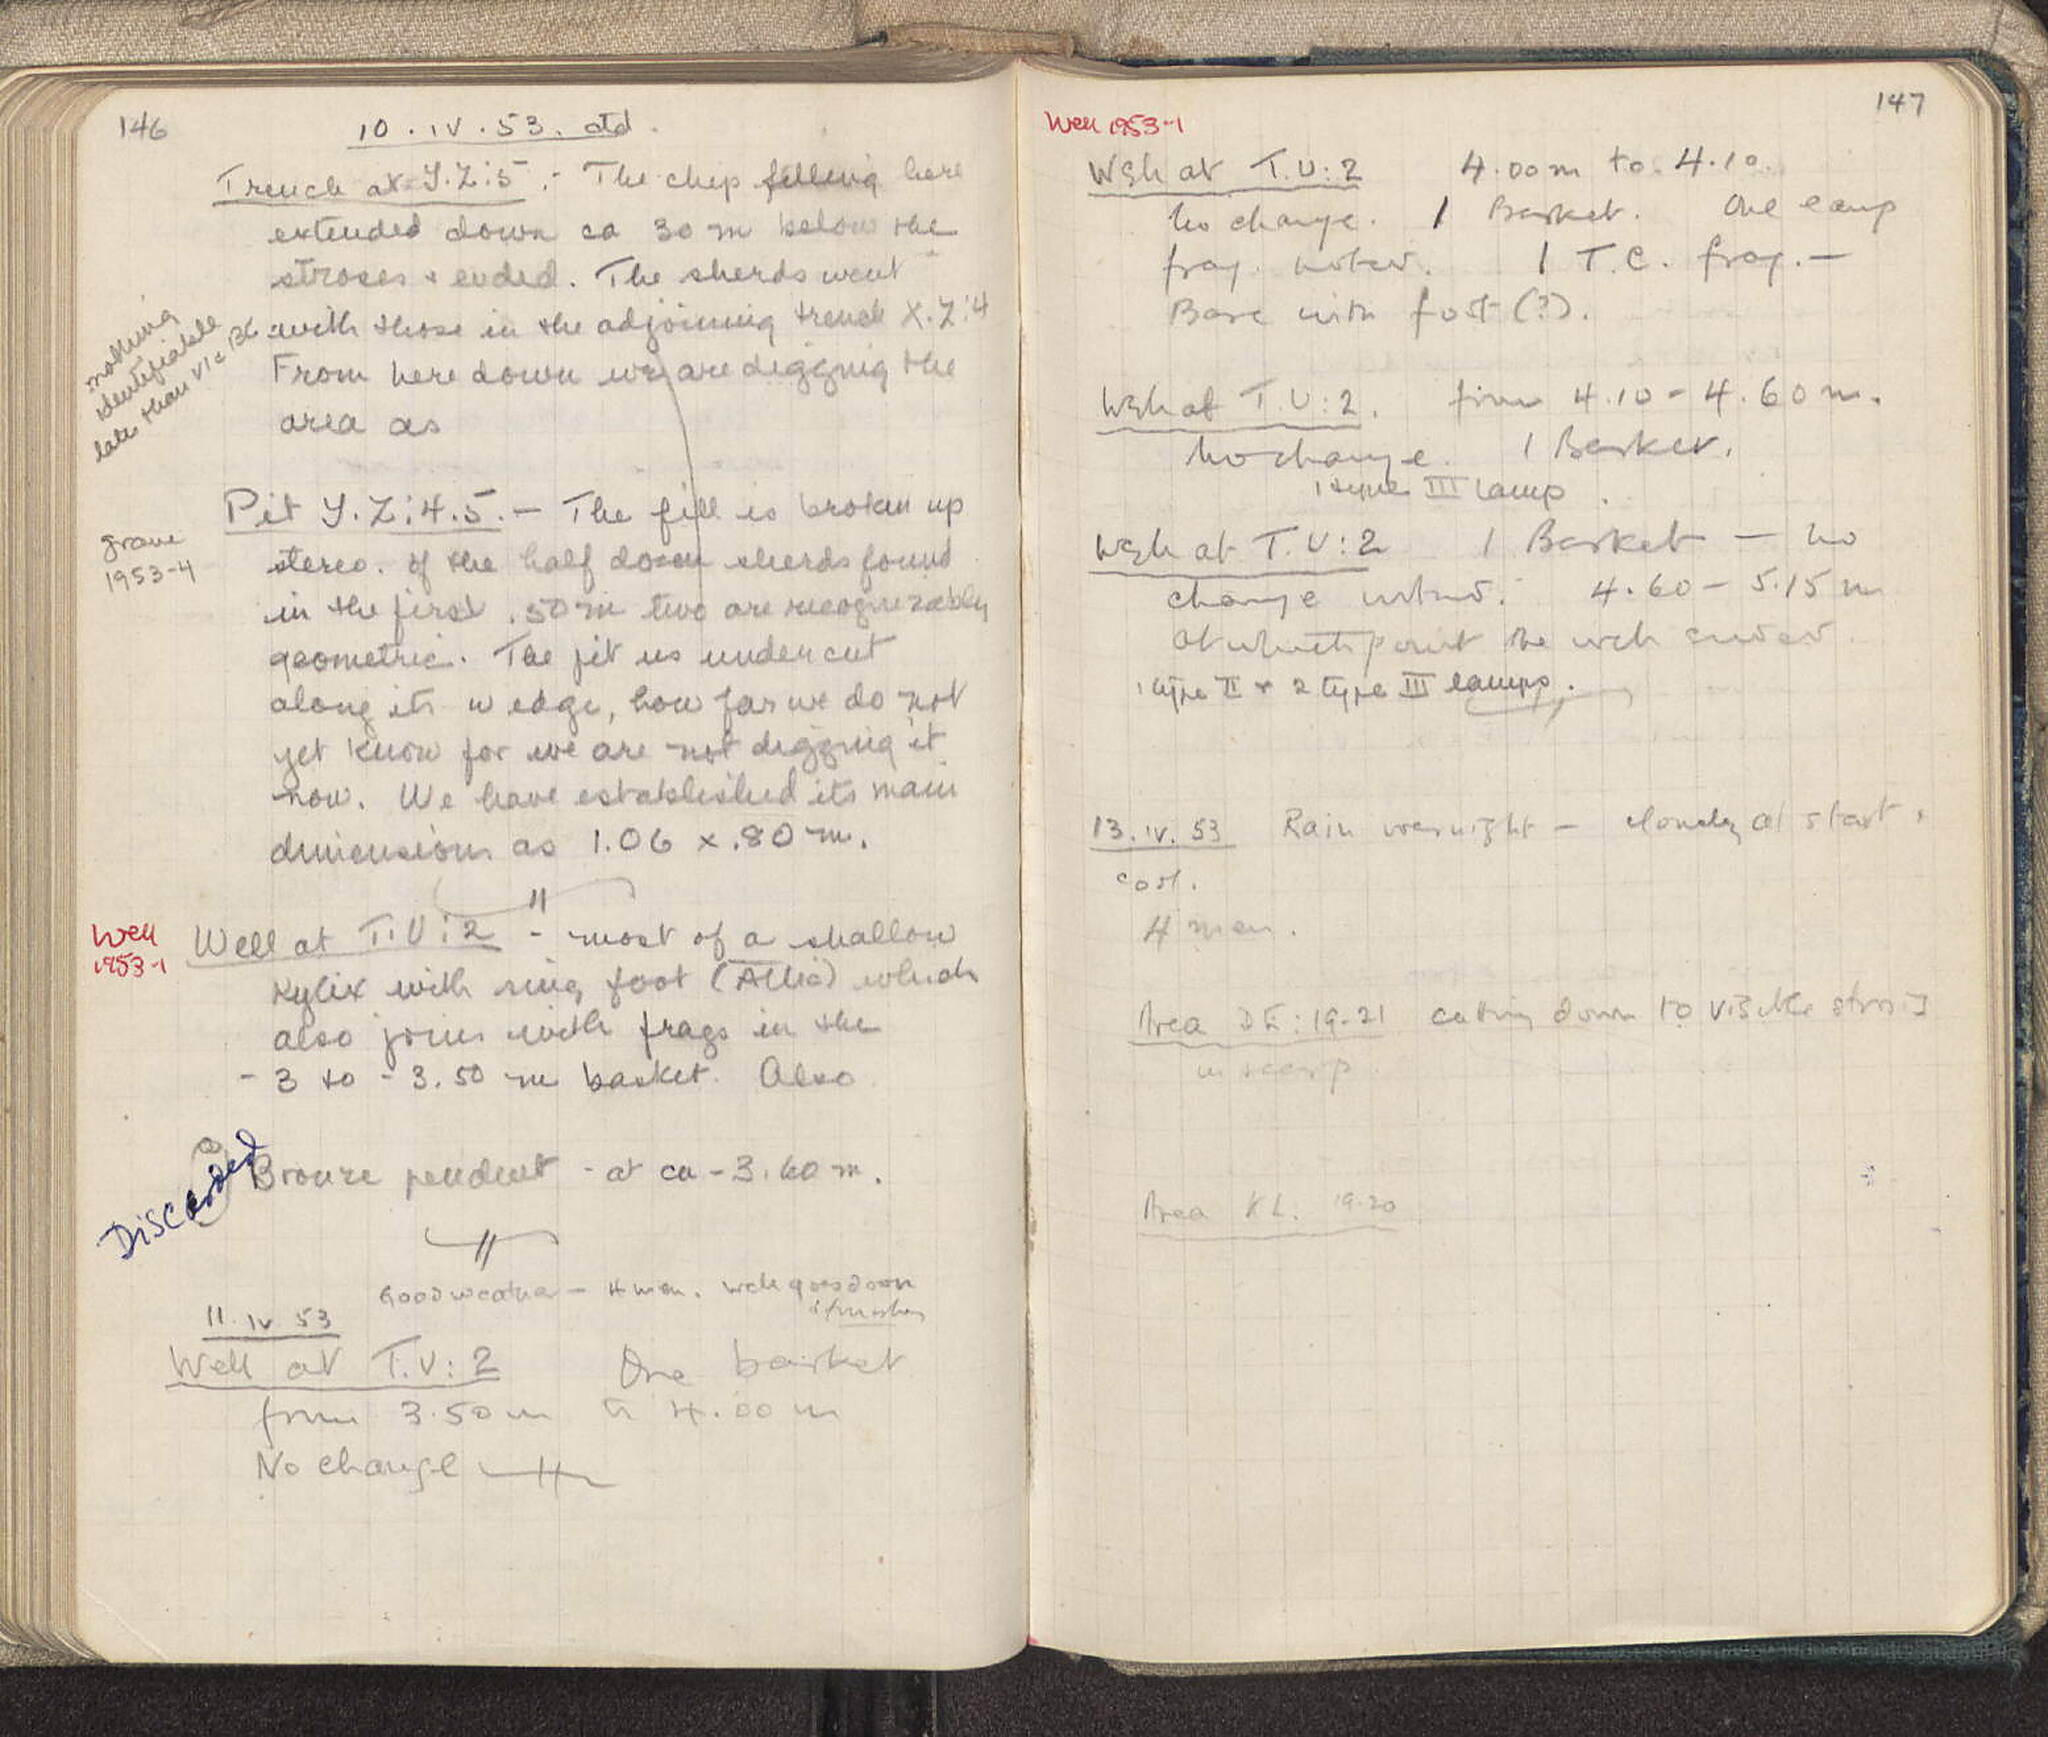 146
10.IV.53. ctd.
Trench at Y.Z:5.- The chip filling here
extended down ca 30 m below the
stroses & ended. The sherds went
with those in the adjoining trench X.Z:4
From here down we are digging the
area as
nothing
identifiable
later than VI c BC
Pit Y.Z:4.5.- The fill is broken up
stereo. Of the half dozen sherds found
in the first .50 m two are recognizably
geometric. The pit is undercut
along its w edge, how far we do not
yet know for we are not digging it
now. We have established its main
dimensions as 1.06 x .80 m.
grave
1953-4
Well
1953-1
Well at T.U:2 - most of a shallow
kylix with ring foot (Attic) which
also joins with frags in the
- 3 to - 3.50 m basket. Also
Discarded
Bronze pendent - at ca - 3.60 m.
Good weather - 4 men. Well goes down
& finishes
11.IV 53
Well at T.U:2 One basket
from 3.50 m to 4.00 m
No change
147
Well 1953-1
Well at T.U:2 4.00 m to 4.10.
No change. 1 Basket. One lamp
frag. noted. 1 T.C. frag.-
Base with foot (?).
Well at T.U:2. from 4.10 - 4.60 m.
No change. 1 Basket.
1 type III lamp.
Well at T.U:2 1 Basket - no
change noted. 4.60 - 5.15 m
at which point the well ended.
1 type II & 2 type III lamps.
13.IV.53 Rain overnight - cloudy at start,
cool.
4 men.
Area DE:19-21 cutting down to visible stroses
in scarp.
Area KL: 19-20